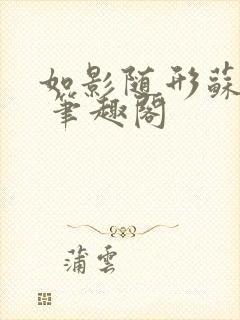 如影随形蘇
筆趣閣
蒲雲